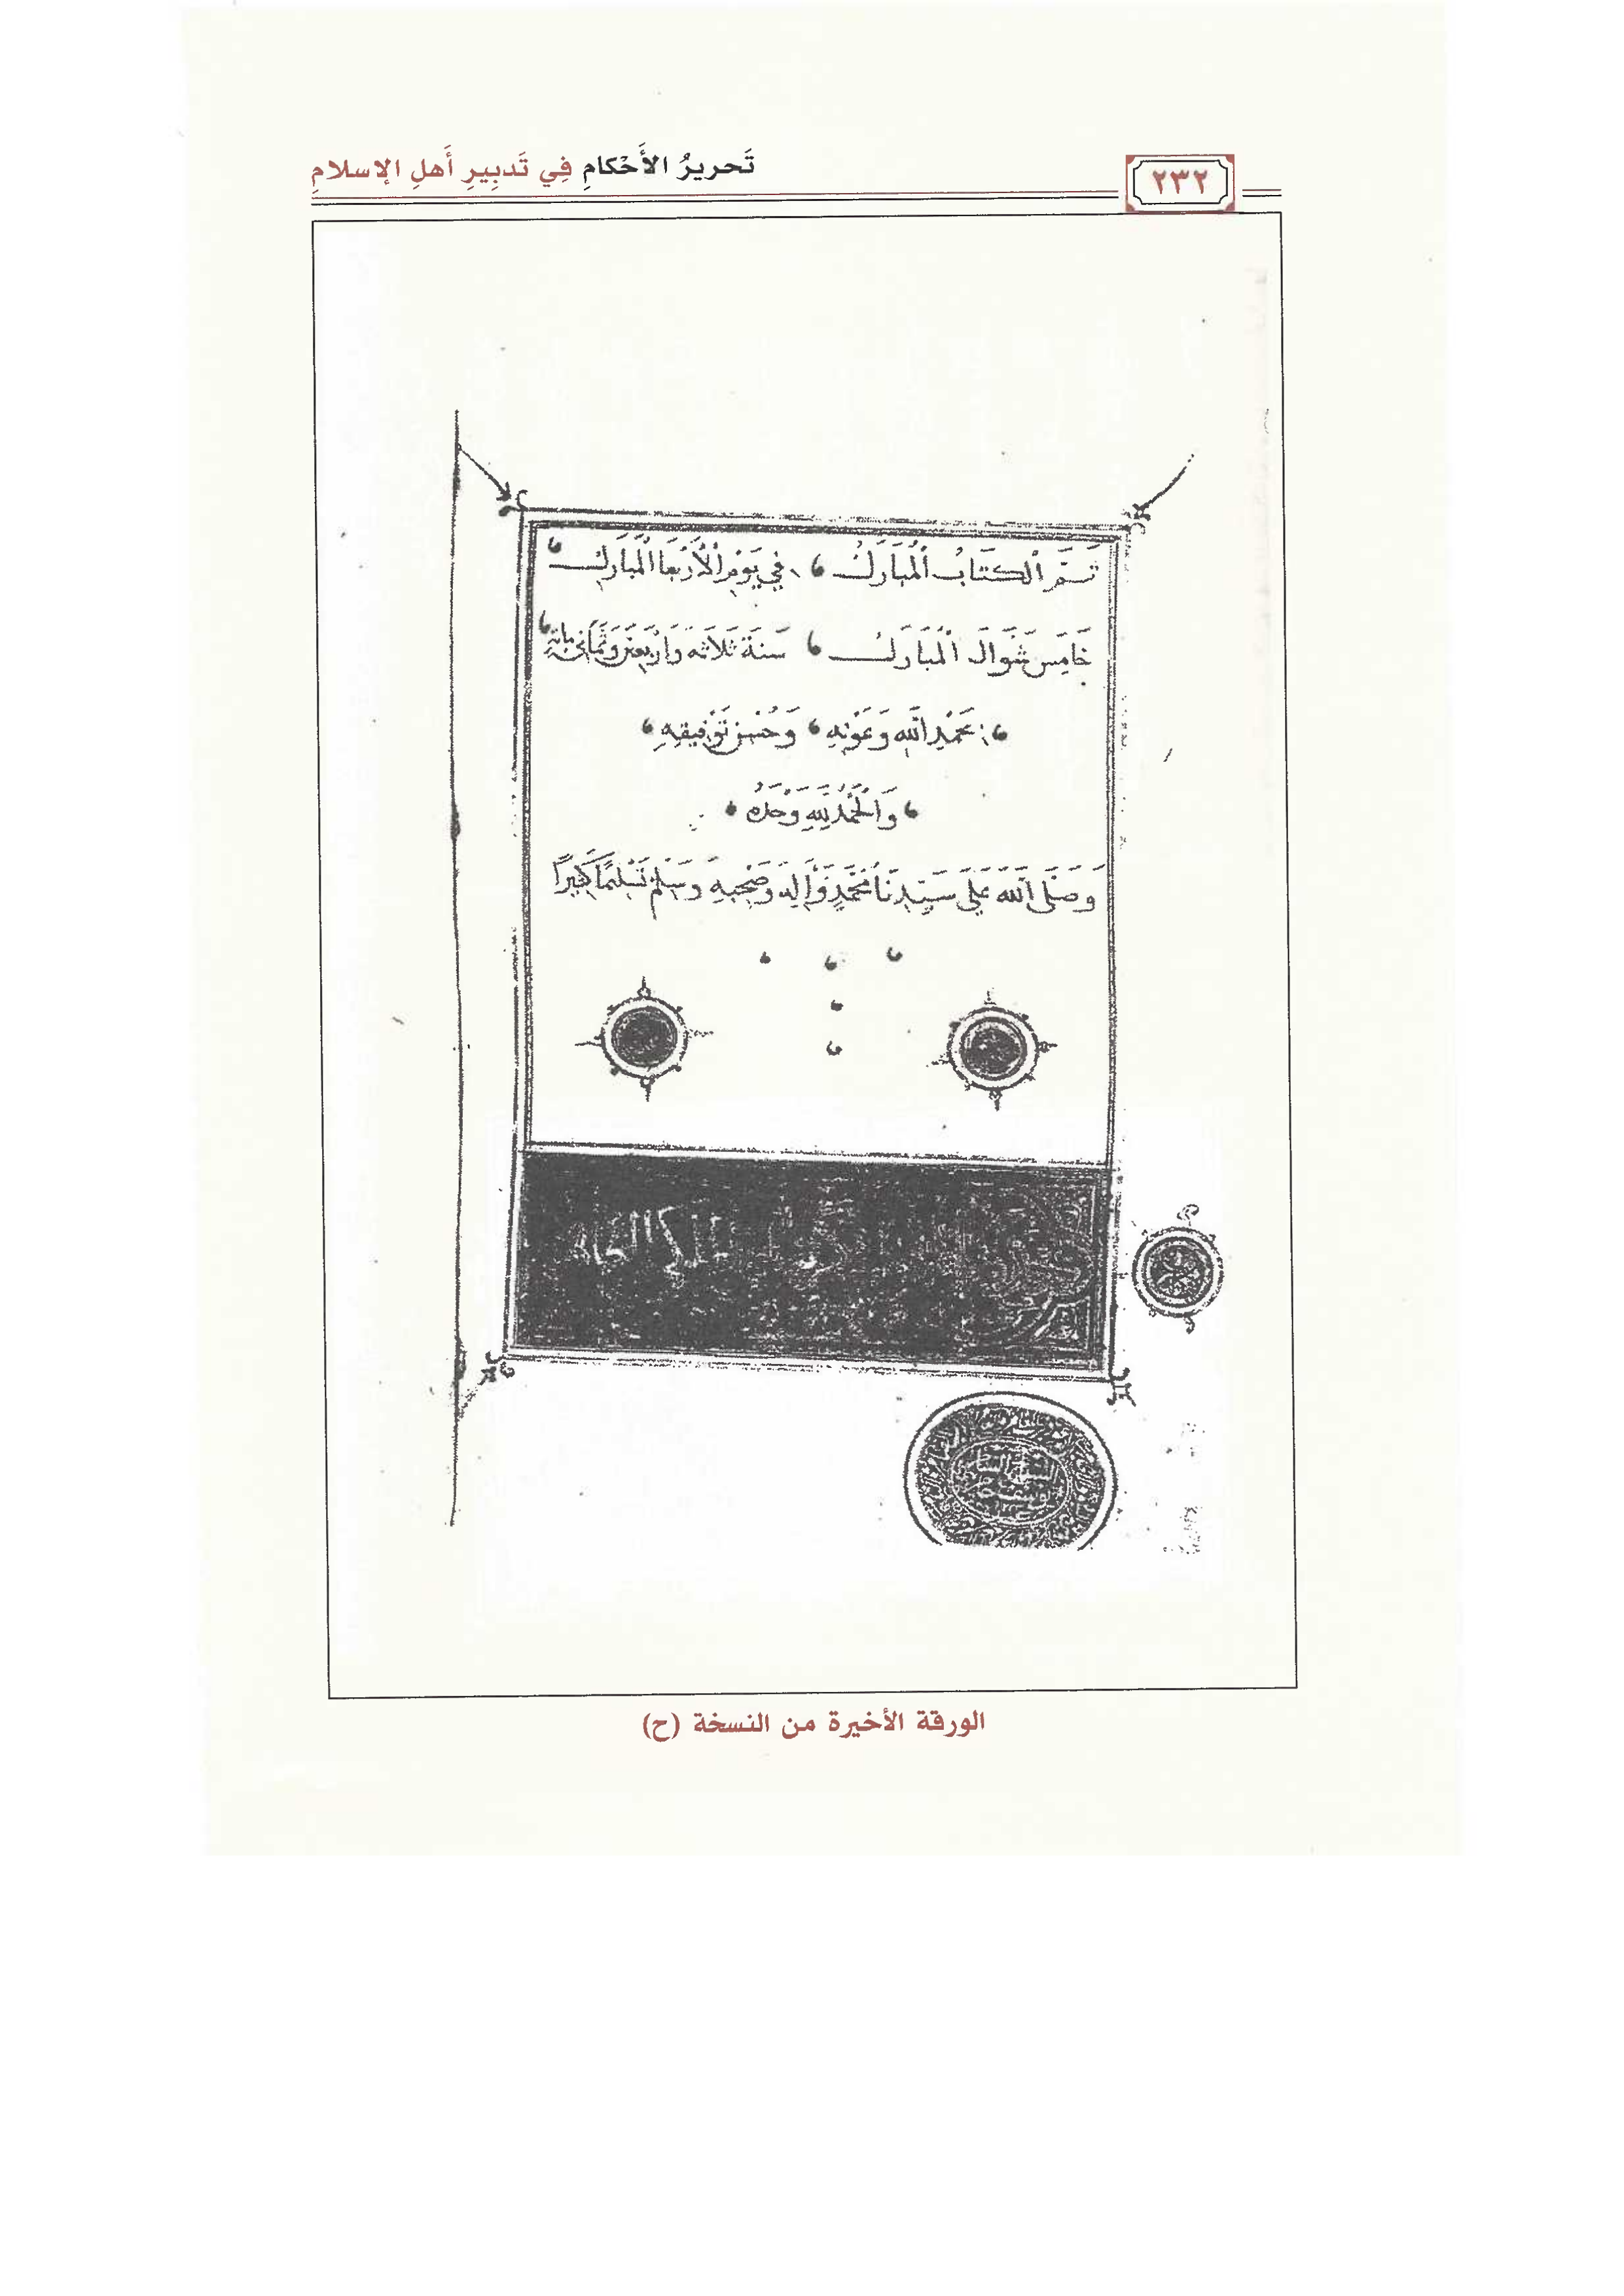 تَحريرُ الأَحْكامِ فِي تَدبِيرِ أَهلِ الإسلامِ
٢٣٢
تَمَّ الْكتَابُ الْمُبَارَكُ فِي يَوْمِ الْأَرْبَعَا الْمُبَارَك
خَامِس شَوَال الْمُبَارَك سَنَةَ ثَلاَثه وَارْبَعِين وَثَمَانِى مِائةِ
بِحَمْدِ اللَّه وَعَوْنِهِ وَحُسْن تَوْفِيقِهِ
وَالْحَمْدُ لِلَّهِ وَحْدَهُ
وَصَلَّى اللَّه عَلَى سَيِّدِنَا مُحَمَّدٍ وَآلِهِ وَصَحْبِهِ وَسَلم تَسْلِيمًا كَثِيرًا
الورقة الأخيرة من النسخة (ح)